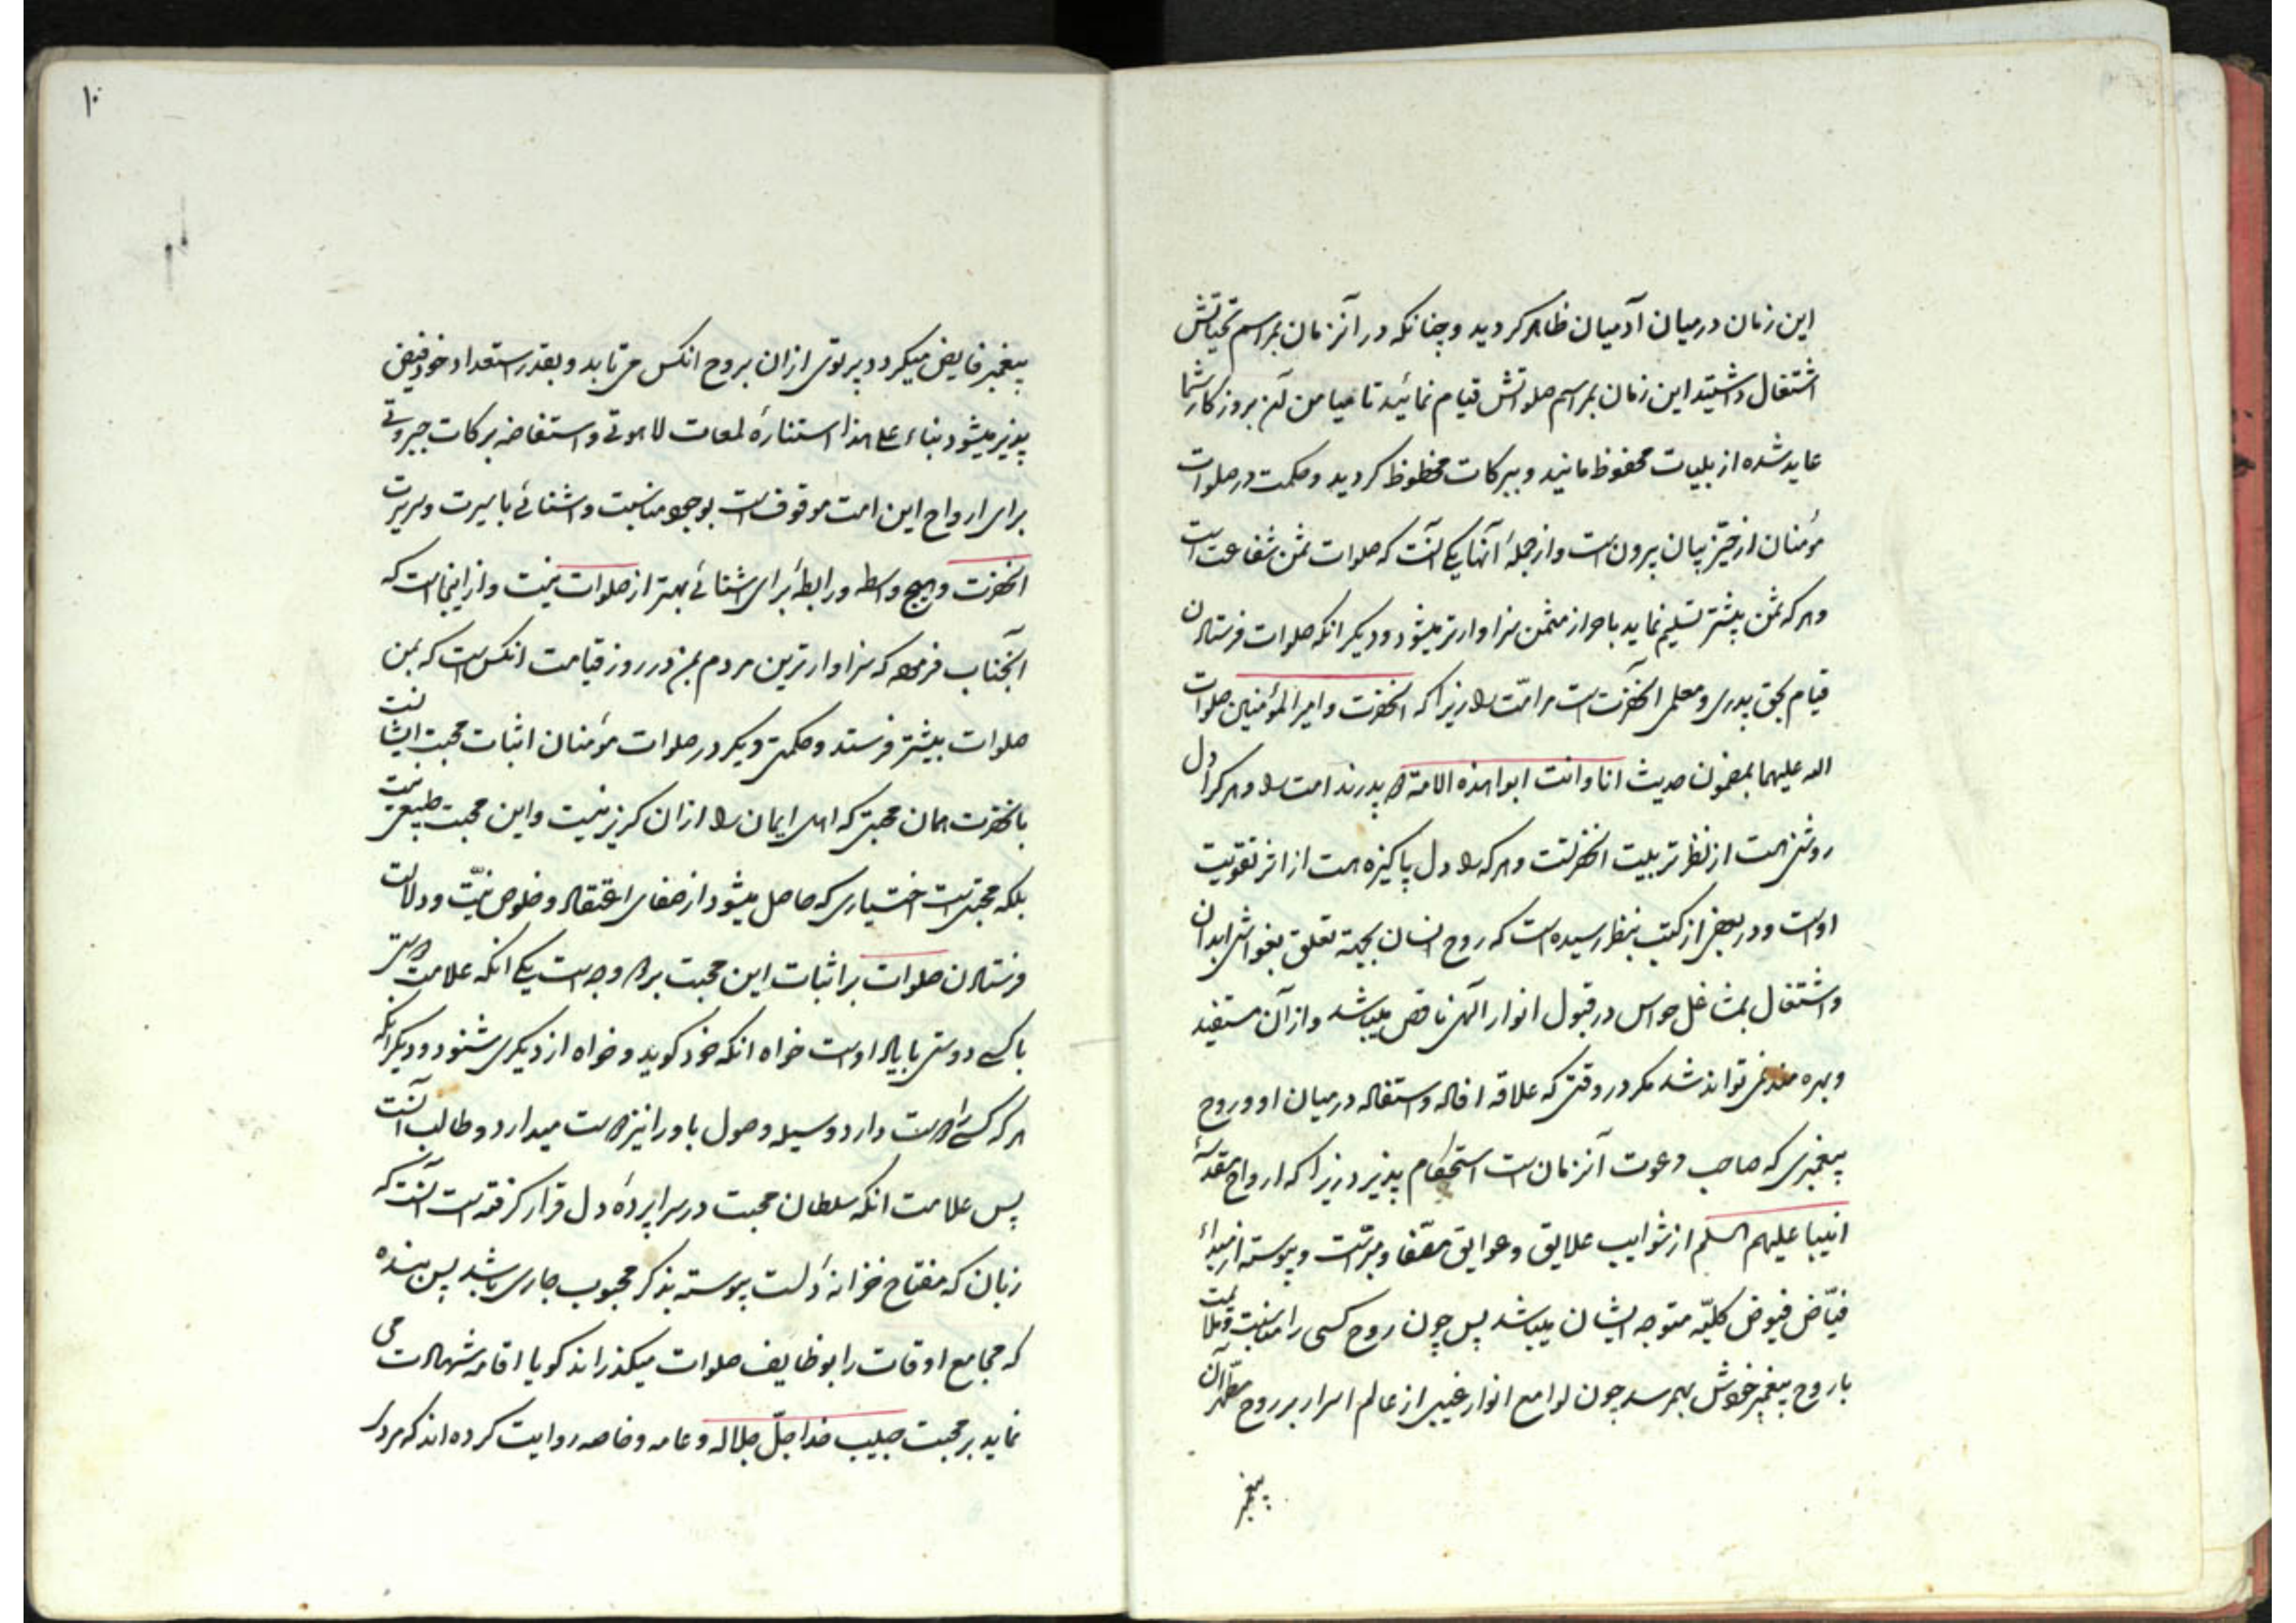 این زمان درمیان آدمیان ظاهر کردید و چنانکه در آنزمان بمراسم تحیاتش
اشتغال داشتید این زمان بمراسم صلواتش قیام نمائید تا میامن آن بروزکار شما
عاید شده از بلیات محفوظ مانید و ببرکات محظوظ کردید و حکمت در صلوات
مؤمنان از حیّز بیان بیرونست و از جملهٔ آنها یکی آنست که صلوات ثمن شفاعت است
و هر که ثمن پیشتر تسلیم نماید باحراز مثمن سزاوارتر میشود و دیکر انکه صلوات فرستادن
قیام بحق پدری و معلمی انحضرت است مر امّت را زیرا که انحضرت و امیر المؤمنین صلوات
الله علیهما بمضمون حدیث انا وانت ابوا هذه الامة دو پدرند امت را و هر کرا دل
روشن است از نظر تربیت انحضرتست و هر که را دل پاکیزه است از اثر تقویت
اوست و در بعضی از کتب بنظر رسیده است که روح انسان بجهة تعلق بغواشی ابدان
و اشتغال بمشاغل حواس در قبول انوار الهی ناقص میباشد و از آن مستفید
و بهره مند نمی تواند شد مکر در وقتی که علاقه افاده و استفاده درمیان او و روح
پیغمبری که صاحب دعوت آنزمان است استحکام پذیرد زیرا که ارواح مقدسهٔ
انبیا علیهم السلم از شوایب علایق و عوایق مصفا و مبرّاست و پیوسته از مبداء
فیّاض فیوض کلیّه متوجه ایشان میباشد پس چون روح کسی را مناسبت و ملایمت
با روح پیغمبر خودش بهمرسد چون لوامع انوار غیبی از عالم اسرار بر روح مطهر آن
پیغمبر
۱۰
پیغمبر فایض میکردد پرتوی ازان بروح انکس می تابد و بقدر استعداد خود فیض
پذیر میشود بناء علی هذا استنارهٔ لمعات لاهوتی و استفاضه برکات جبروتی
برای ارواح این امت موقوفست بوجود مناسبت و اشنائی با سیرت و سریرت
انحضرت و هیچ واسطه و رابطهٔ برای اشنائی بهتر از صلوات نیست و از اینجاست که
آنجناب فرموده که سزاوارترین مردم بمن در روز قیامت انکس است که بمن
صلوات بیشتر فرستد و حکمتی دیکر در صلوات مؤمنان اثبات محبت ایشانست
بانحضرت همان محبتی که اهل ایمان را ازان کریز نیست و این محبت طبیعی نیست
بلکه محبتیست اختیاری که حاصل میشود از صفای اعتقاد و خلوص نیّت و دلالت
فرستادن صلوات بر اثبات این محبت بدو وجه است یکی انکه علامت دوستی
با کسی دوستی با یاد اوست خواه انکه خود کوید و خواه از دیکری شنود و دیکر انکه
هر که کسی را دوست دارد وسیله وصول باو را نیز دوست میدارد و طالب آنست
پس علامت انکه سلطان محبت در سراپردهٔ دل قرار کرفته است آنست که
زبان که مفتاح خزانهٔ دلست پیوسته بذکر محبوب جاری باشد پس بنده
که مجامع اوقات را بوظایف صلوات میکذراند کویا اقامه شهادت می
نماید بر محبت حبیب خدا جلّ جلاله و عامه و خاصه روایت کرده اند که مردی